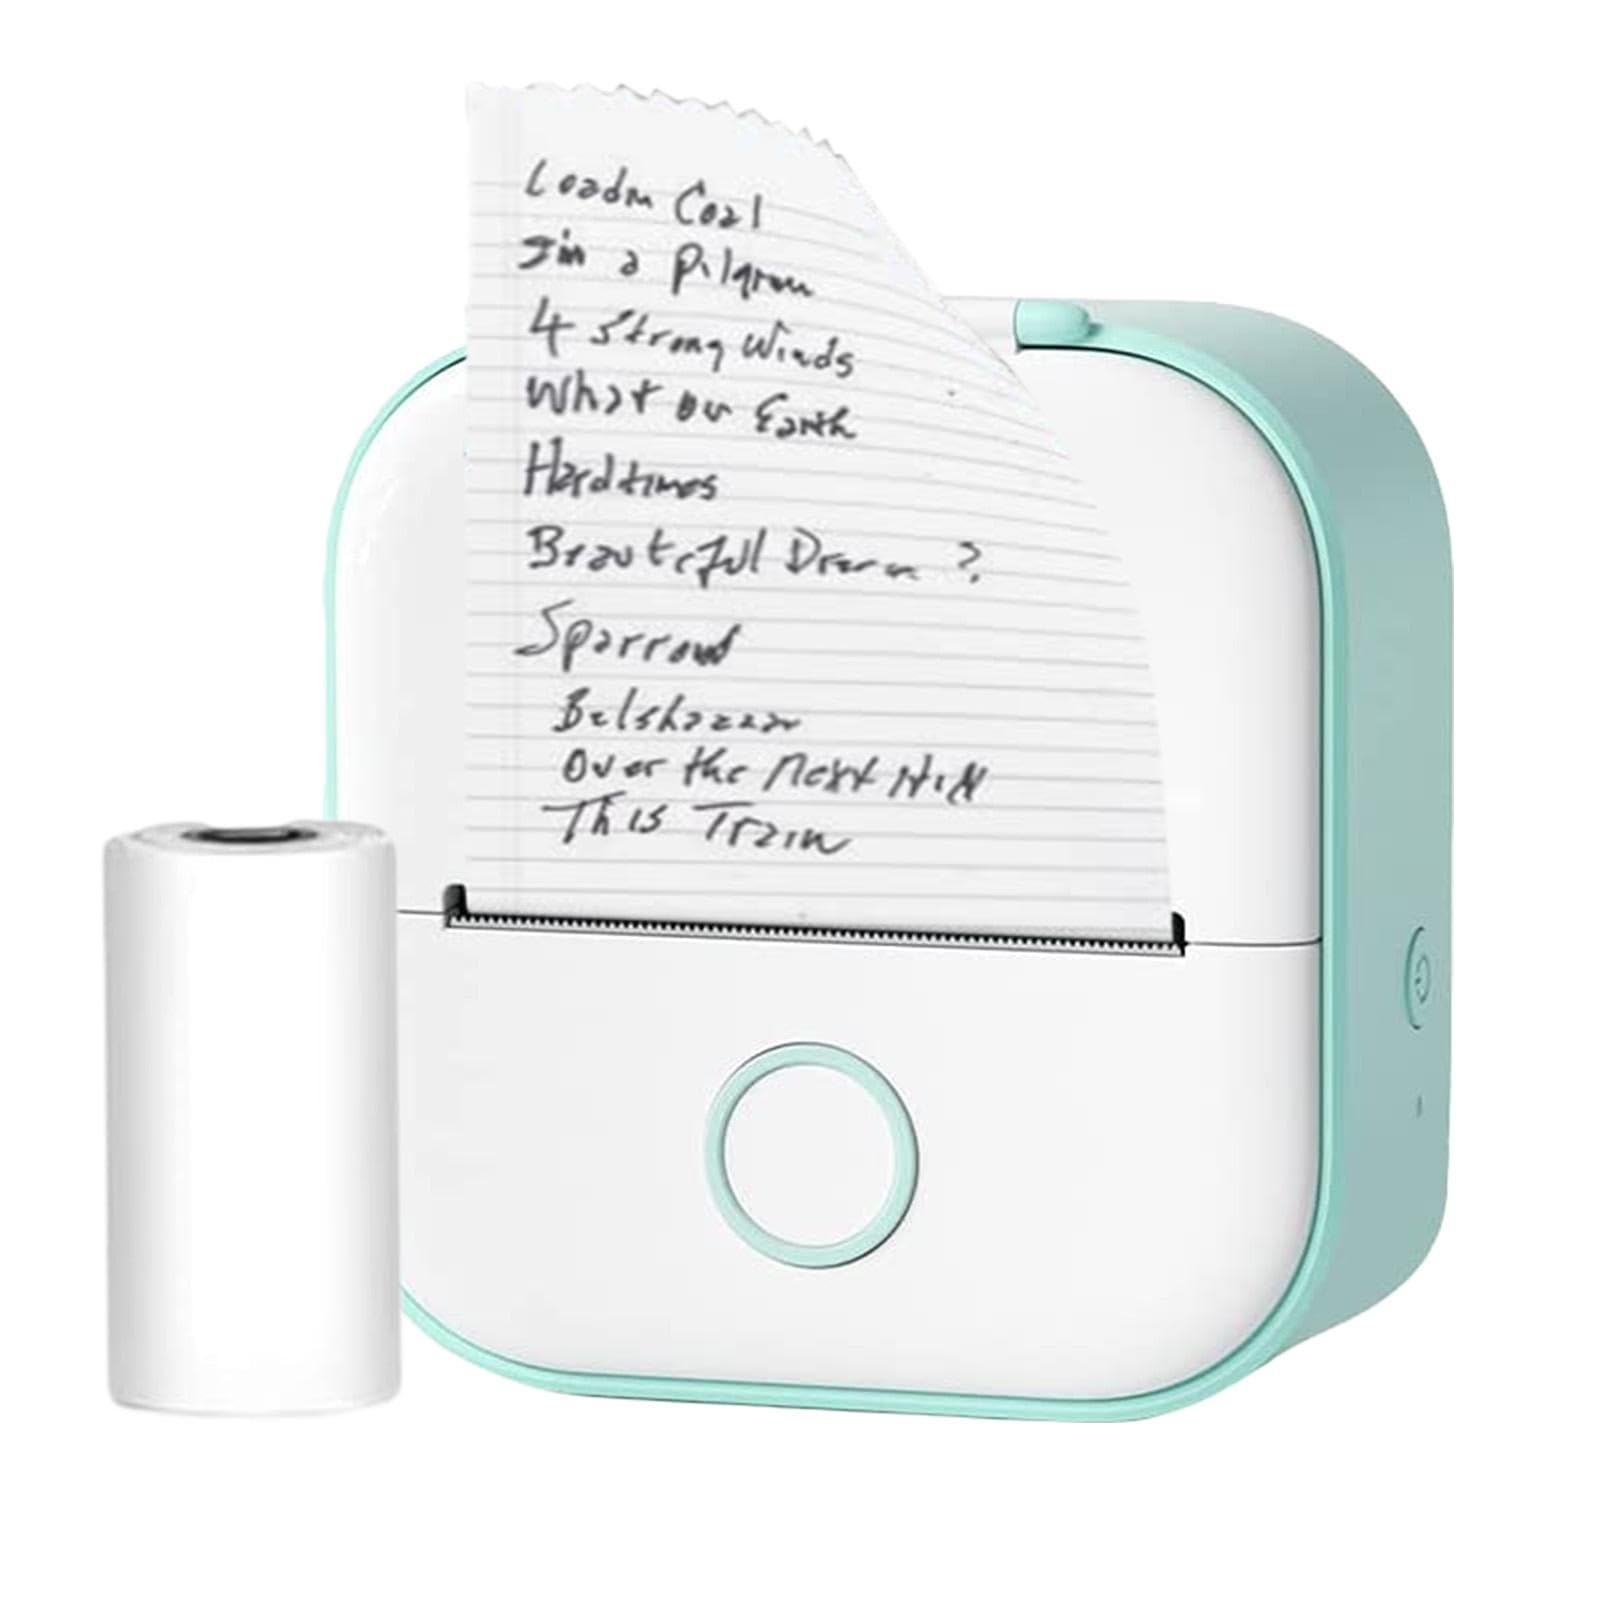 Loadin Coal
I'm a Pilgrim
4 Strong Winds
What on Earth
Hardtimes
Beautiful Dream ?
Sparrow
Belshazzar
Over the Next Hill
This Train